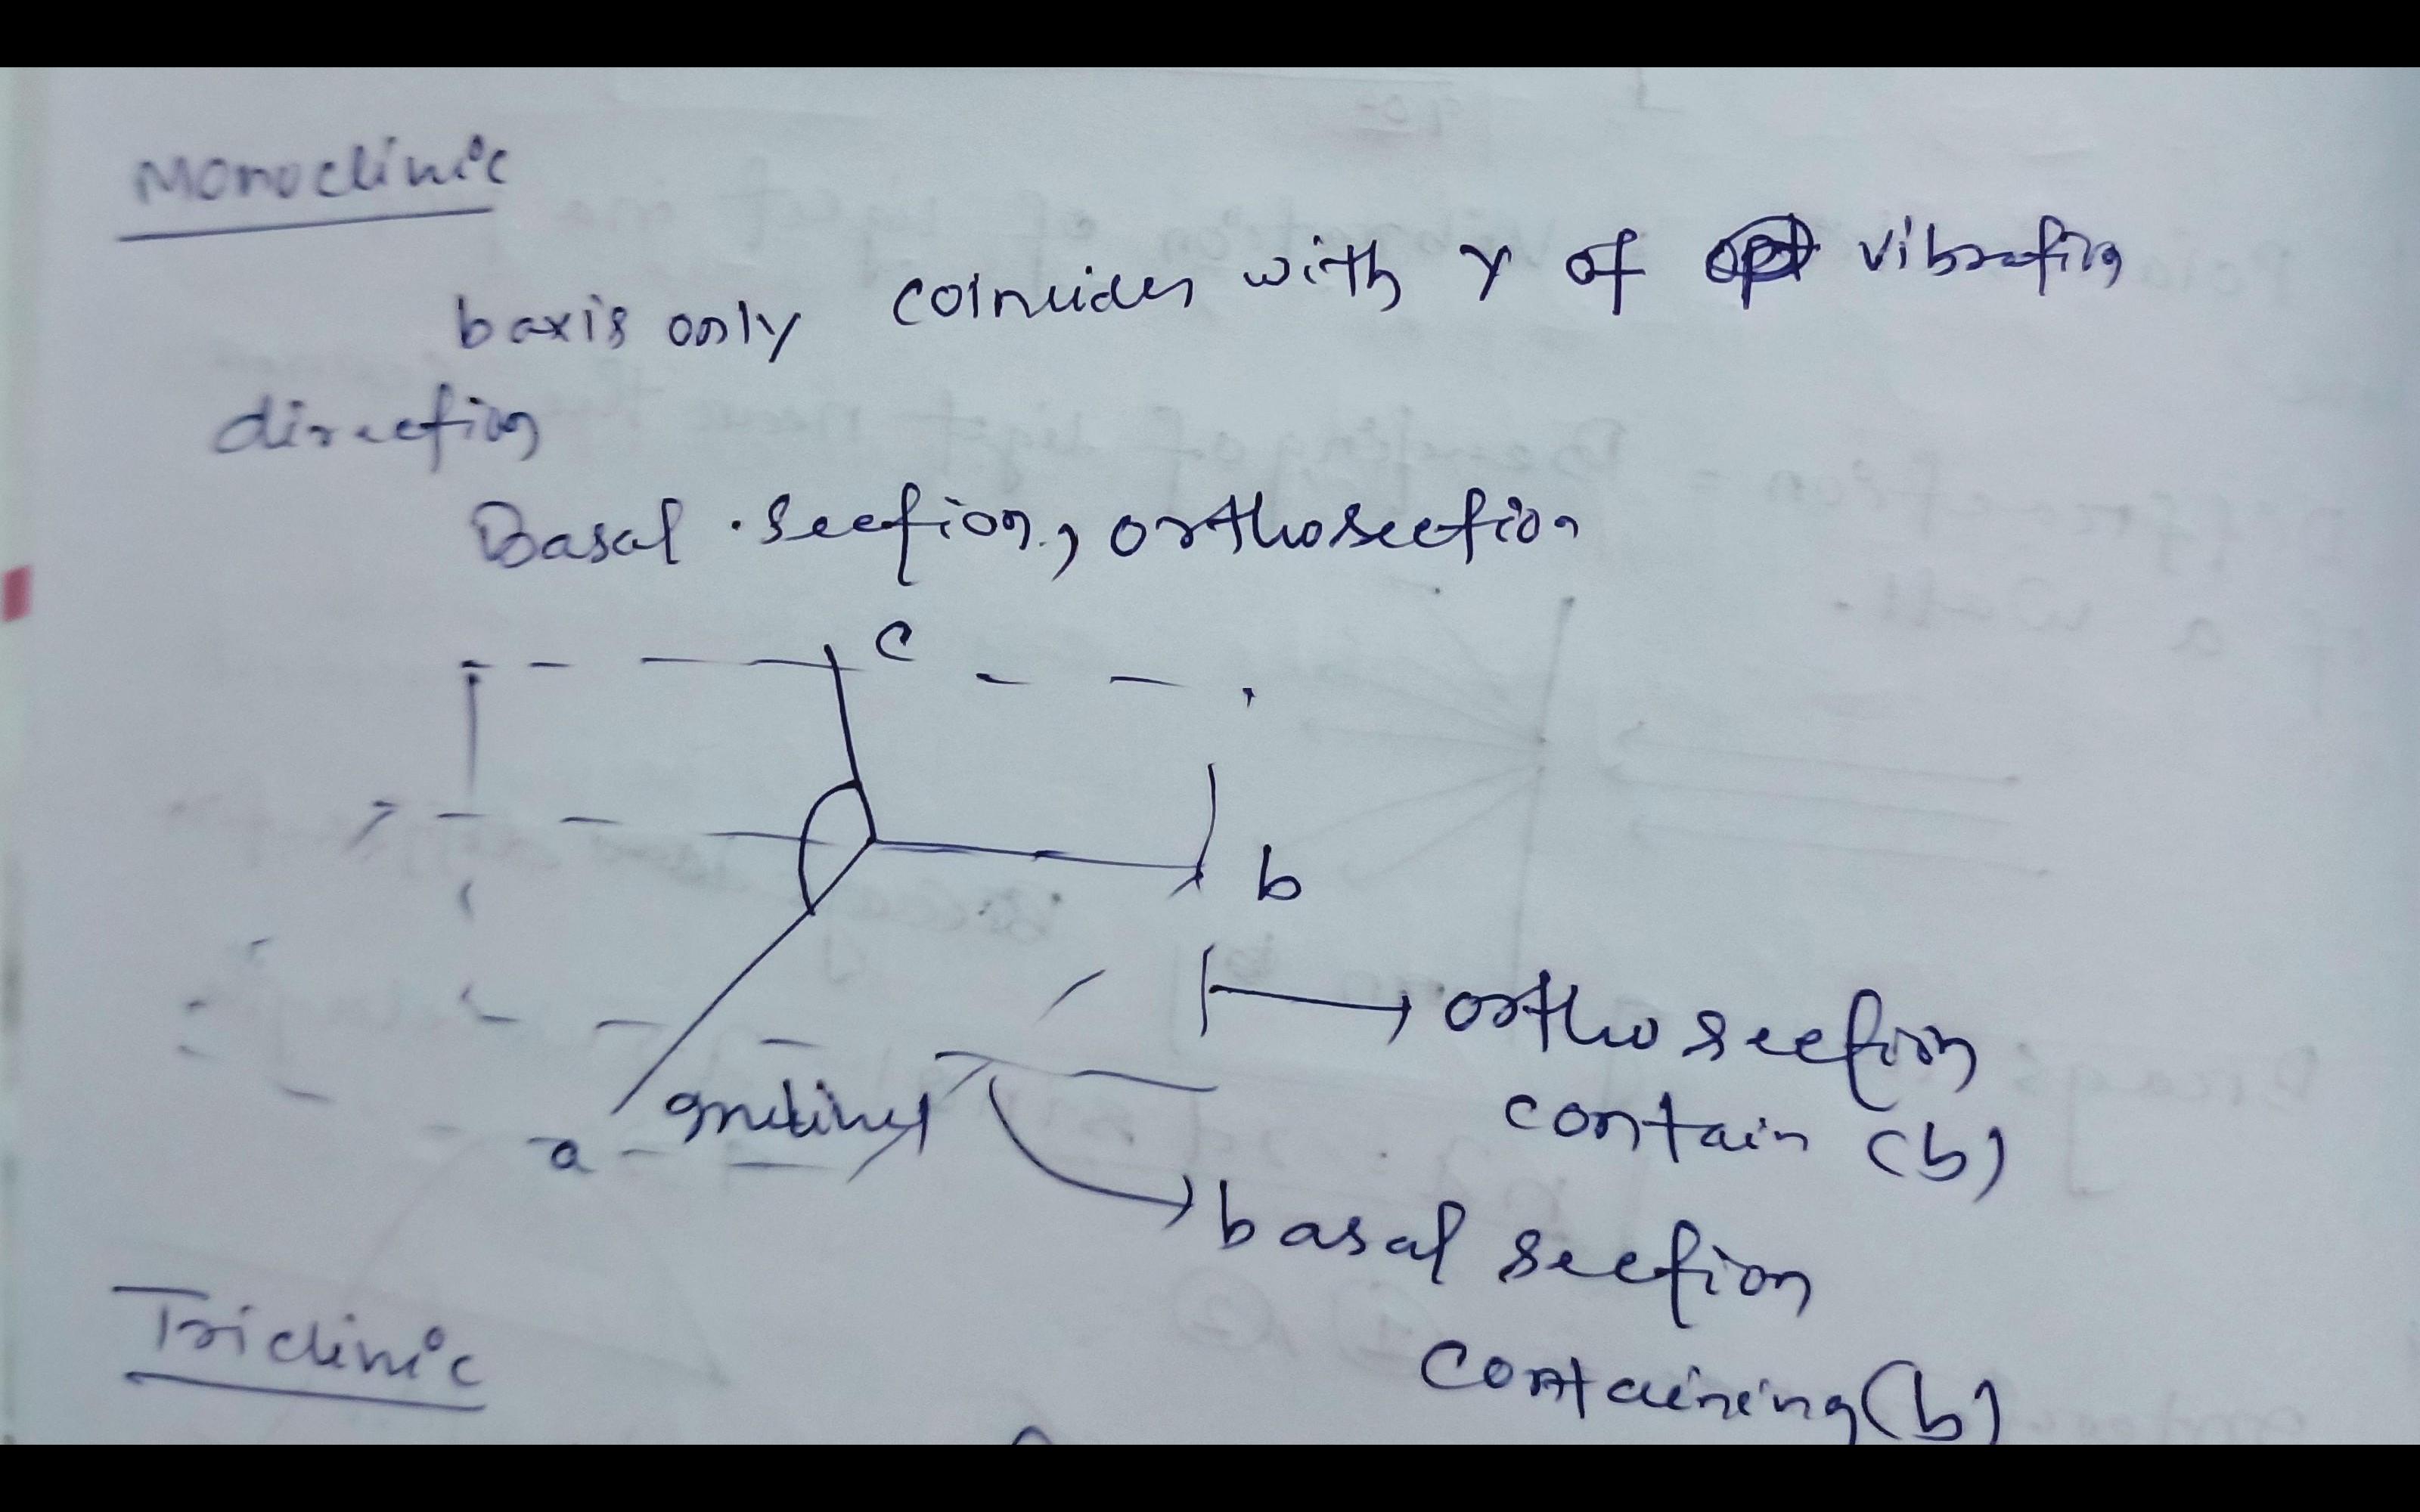 Monoclinic
b axis only coincides with Y of vibration
direction
Basal section, orthosection
c
b
ortho section
contain (b)
a inclined
basal section
containing (b)
Triclinic